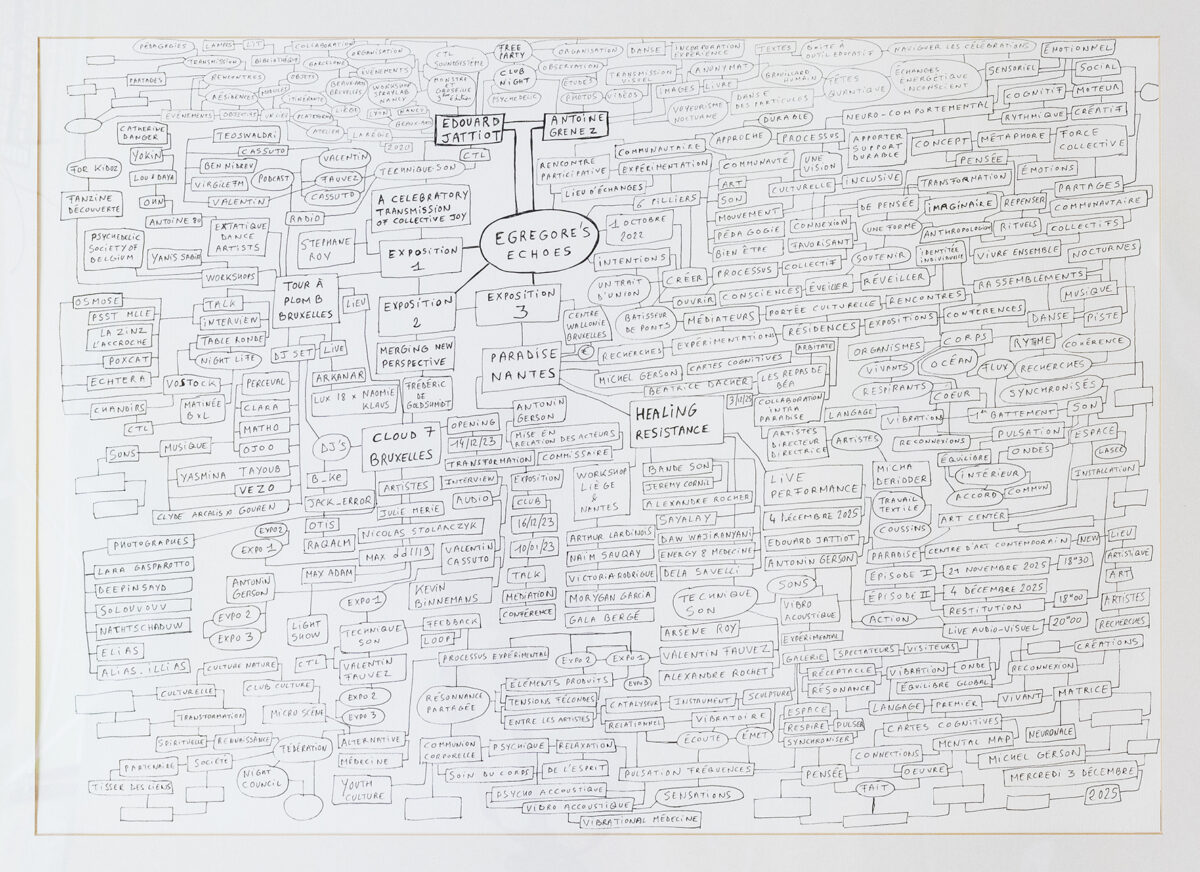 PÉDAGOGIES
LAMPES
LIT
COLLABORATION
ORGANISATION
CTL
SOUNDSYSTÈME
FREE
PARTY
ORGANISATION
DANSE
INCORPORATION
EXPÉRIENCE
TEXTES
BOITE À
OUTIL ÉDUCATIF
NAVIGUER LES CÉLÉBRATIONS
ÉMOTIONNEL
TRANSMISSION
BIBLIOTHÈQUE
OBSERVATION
SENSORIEL
SOCIAL
PARTAGES
RENCONTRES
OBJETS
ÉVÉNEMENTS
CLUB
NIGHT
ÉTUDES
TRANSMISSION
VISUEL
ANONYMAT
BROUILLARD
HUMAIN
TÊTES
QUANTIQUE
ÉCHANGES
ÉNERGÉTIQUE
INCONSCIENT
COGNITIF
MOTEUR
RÉSIDENCES
MODULES
ITINÉRANTE
BEAUX-ARTS
BRUXELLES
WORKSHOP
STRAYLAB
NANCY
PSYCHEDELIC
PHOTOS
VIDÉOS
IMAGES
LIVRE
DANSE
DES PARTICULES
VOYEURISME
NOCTURNE
DURABLE
NEURO-COMPORTEMENTAL
RYTHMIQUE
CRÉATIF
ÉVÉNEMENTS
OBJECTIF
PLATEFORME
LIÈGE
LYON
FRANCE
BEAUX-ARTS
ATELIER
EDOUARD
JATTIOT
ANTOINE
GRENEZ
CATHERINE
DANGER
TEOSWALDRI
2020
CTL
COMMUNAUTAIRE
APPROCHE
PROCESSUS
APPORTER
SUPPORT
DURABLE
CONCEPT
MÉTAPHORE
FORCE
COLLECTIVE
YOKIN
CASSUTO
VALENTIN
RENCONTRE
PARTICIPATIVE
EXPÉRIMENTATION
COMMUNAUTÉ
UNE
VISION
PENSÉE
FOR KIDOZ
LOU B DAYA
BEN NIDROV
FAUVEZ
TECHNIQUE SON
ART
CULTURELLE
INCLUSIVE
TRANSFORMATION
ÉMOTIONS
VIRGILE FM
PODCAST
CASSUTO
LIEU D'ÉCHANGES
SON
PARTAGES
FANZINE
DÉCOUVERTE
OHN
VALENTIN
A CELEBRATORY
TRANSMISSION
OF COLLECTIVE JOY
6 PILLIERS
MOUVEMENT
DE PENSÉE
IMAGINAIRE
REPENSER
COMMUNAUTAIRE
ANTOINE 80
RADIO
1 OCTOBRE
2022
PÉDAGOGIE
CONNEXION
UNE FORME
ANTHROPOLOGIE
RITUELS
COLLECTIFS
PSYCHEDELIC
SOCIETY OF
BELGIUM
YANIS SABIR
EXTATIQUE
DANCE
ARTISTS
STEPHANE
ROY
EXPOSITION
1
EGREGORE'S
ECHOES
BIEN ÊTRE
FAVORISANT
IDENTITÉE
INDIVIDUELLE
VIVRE ENSEMBLE
NOCTURNES
INTENTIONS
CRÉER
PROCESSUS
COLLECTIF
SOUTENIR
WORKSHOPS
TOUR À
PLOMB
BRUXELLES
LIEU
EXPOSITION
2
EXPOSITION
3
UN TRAIT
D'UNION
OUVRIR
CONSCIENCES
ÉVEILLER
RÉVEILLER
RASSEMBLEMENTS
OSMOSE
TALK
PSST MLLE
INTERVIEW
CENTRE
WALLONIE
BRUXELLES
BATISSEUR
DE PONTS
MÉDIATEURS
PORTÉE CULTURELLE
RENCONTRES
MUSIQUE
LA ZINZ
L'ACCROCHE
TABLE RONDE
EXPÉRIMENTATIONS
RÉSIDENCES
EXPOSITIONS
CONFÉRENCES
DANSE
PISTE
POXCAT
NIGHT LIFE
DJ SET
LIVE
MERGING NEW
PERSPECTIVE
PARADISE
NANTES
€
RECHERCHES
ORGANISMES
CORPS
RYTME
COHÉRENCE
ECHTERA
VOSTOCK
PERCEVAL
ARKANAR
MICHEL GERSON
CARTES COGNITIVES
VIVANTS
OCÉAN
FLUX
RECHERCHES
LUX 18 X NAOMIE
KLAUS
FRÉDÉRIC
DE
GOLDSCHMIDT
BEATRICE DACHER
LES REPAS DE
BÉA
RESPIRANTS
COEUR
SYNCHRONISÉS
CHANDIRS
MATINÉE
BXL
CLARA
ANTONIN
GERSON
HEALING
RESISTANCE
3/12/25
COLLABORATION
INTRA
PARADISE
LANGAGE
VIBRATION
1er BATTEMENT
SON
CTL
MATHO
OPENING
14/12/23
MISE EN
RELATION DES ACTEURS
PULSATION
ESPACE
SONS
MUSIQUE
OJOO
DJ'S
CLOUD 7
BRUXELLES
TRANSFORMATION
COMMISSAIRE
ARTISTES
DIRECTEUR
DIRECTRICE
ARTISTES
RECONNEXIONS
ÉQUILIBRE
ONDES
LASER
YASMINA TAYOUB
B_KE
ARTISTES
INTERVIEW
EXPOSITION
WORKSHOP
LIÈGE
&
NANTES
BANDE SON
LIVE
PERFORMANCE
MICHA
DERIDDER
INTÉRIEUR
INSTALLATION
VEZO
JACK_ERROR
AUDIO
CLUB
JEREMY CORNIL
ACCORD
COMMUN
CLYDE ARCALIS X GOUREN
JULIE MERIE
ALEXANDRE ROCHER
TRAVAIL
TEXTILE
OTIS
NICOLAS STOLARCZYK
16/12/23
SAYALAY
4 DÉCEMBRE 2025
COUSSINS
ART CENTER
PHOTOGRAPHES
EXPO2
EXPO 1
RAQALM
ARTHUR LARDINOIS
DAW WAJIRANYANI
EDOUARD JATTIOT
LIEU
VALENTIN
CASSUTO
10/01/23
NAIM SAUQAY
ENERGY & MEDECINE
ANTONIN GERSON
PARADISE
CENTRE D'ART CONTEMPORAIN
NEW
ARTISTIQUE
LARA GASPAROTTO
ANTONIN
GERSON
MAX ADAM
TALK
VICTORIA RODRIGUE
DELA SAVELLI
SONS
ÉPISODE I
27 NOVEMBRE 2025
18H30
ART
DEEPINSAYD
EXPO 1
KEVIN
BINNEMANS
MEDIATION
MORYGAN GARCIA
TECHNIQUE
SON
VIBRO
ACOUSTIQUE
ÉPISODE II
4 DÉCEMBRE 2025
SOLOUVOUV
EXPO 2
CONFÉRENCE
GALA BERGÉ
RESTITUTION
18H00
ARTISTES
NATHTSCHADUW
EXPO 3
LIGHT
SHOW
TECHNIQUE
SON
FEEDBACK
LOOP
ARSENE ROY
EXPÉRIMENTAL
ACTION
LIVE AUDIO-VISUEL
20H00
RECHERCHES
ELIAS
GALERIE
SPECTATEURS
VISITEURS
CRÉATIONS
ALIAS. ILLIAS
CULTURE NATURE
CTL
VALENTIN
FAUVEZ
PROCESSUS EXPÉRIMENTAL
EXPO 2
EXPO 1
VALENTIN FAUVEZ
RÉCEPTACLE
VIBRATION
ONDE
RECONNEXION
CULTURELLE
CLUB CULTURE
ELÉMENTS PRODUITS
EXPO 3
ALEXANDRE ROCHET
RÉSONANCE
ÉQUILIBRE GLOBAL
EXPO 2
RÉSONNANCE
PARTAGÉE
TENSIONS FÉCONDES
CATALYSEUR
INSTRUMENT
SCULPTURE
VIVANT
MATRICE
TRANSFORMATION
MICRO SCÈNE
EXPO 3
ENTRE LES ARTISTES
RELATIONNEL
VIBRATOIRE
ESPACE
LANGAGE
PREMIER
RESPIRE
PULSER
CARTES COGNITIVES
NEURONALE
SPIRITUELLE
RENAISSANCE
FÉDÉRATION
ALTERNATIVE
COMMUNION
CORPORELLE
PSYCHIQUE
RELAXATION
ÉCOUTE
ÉMET
SYNCHRONISER
MENTAL MAP
PARTENAIRE
SOCIÉTÉ
MÉDECINE
CONNECTIONS
MICHEL GERSON
TISSER DES LIENS
NIGHT
COUNCIL
YOUTH
CULTURE
SOIN DU CORPS
DE L'ESPRIT
PULSATION FRÉQUENCES
PENSÉE
OEUVRE
MERCREDI 3 DÉCEMBRE
PSYCHO ACCOUSTIQUE
SENSATIONS
FAIT
2025
VIBRO ACCOUSTIQUE
VIBRATIONAL MÉDECINE